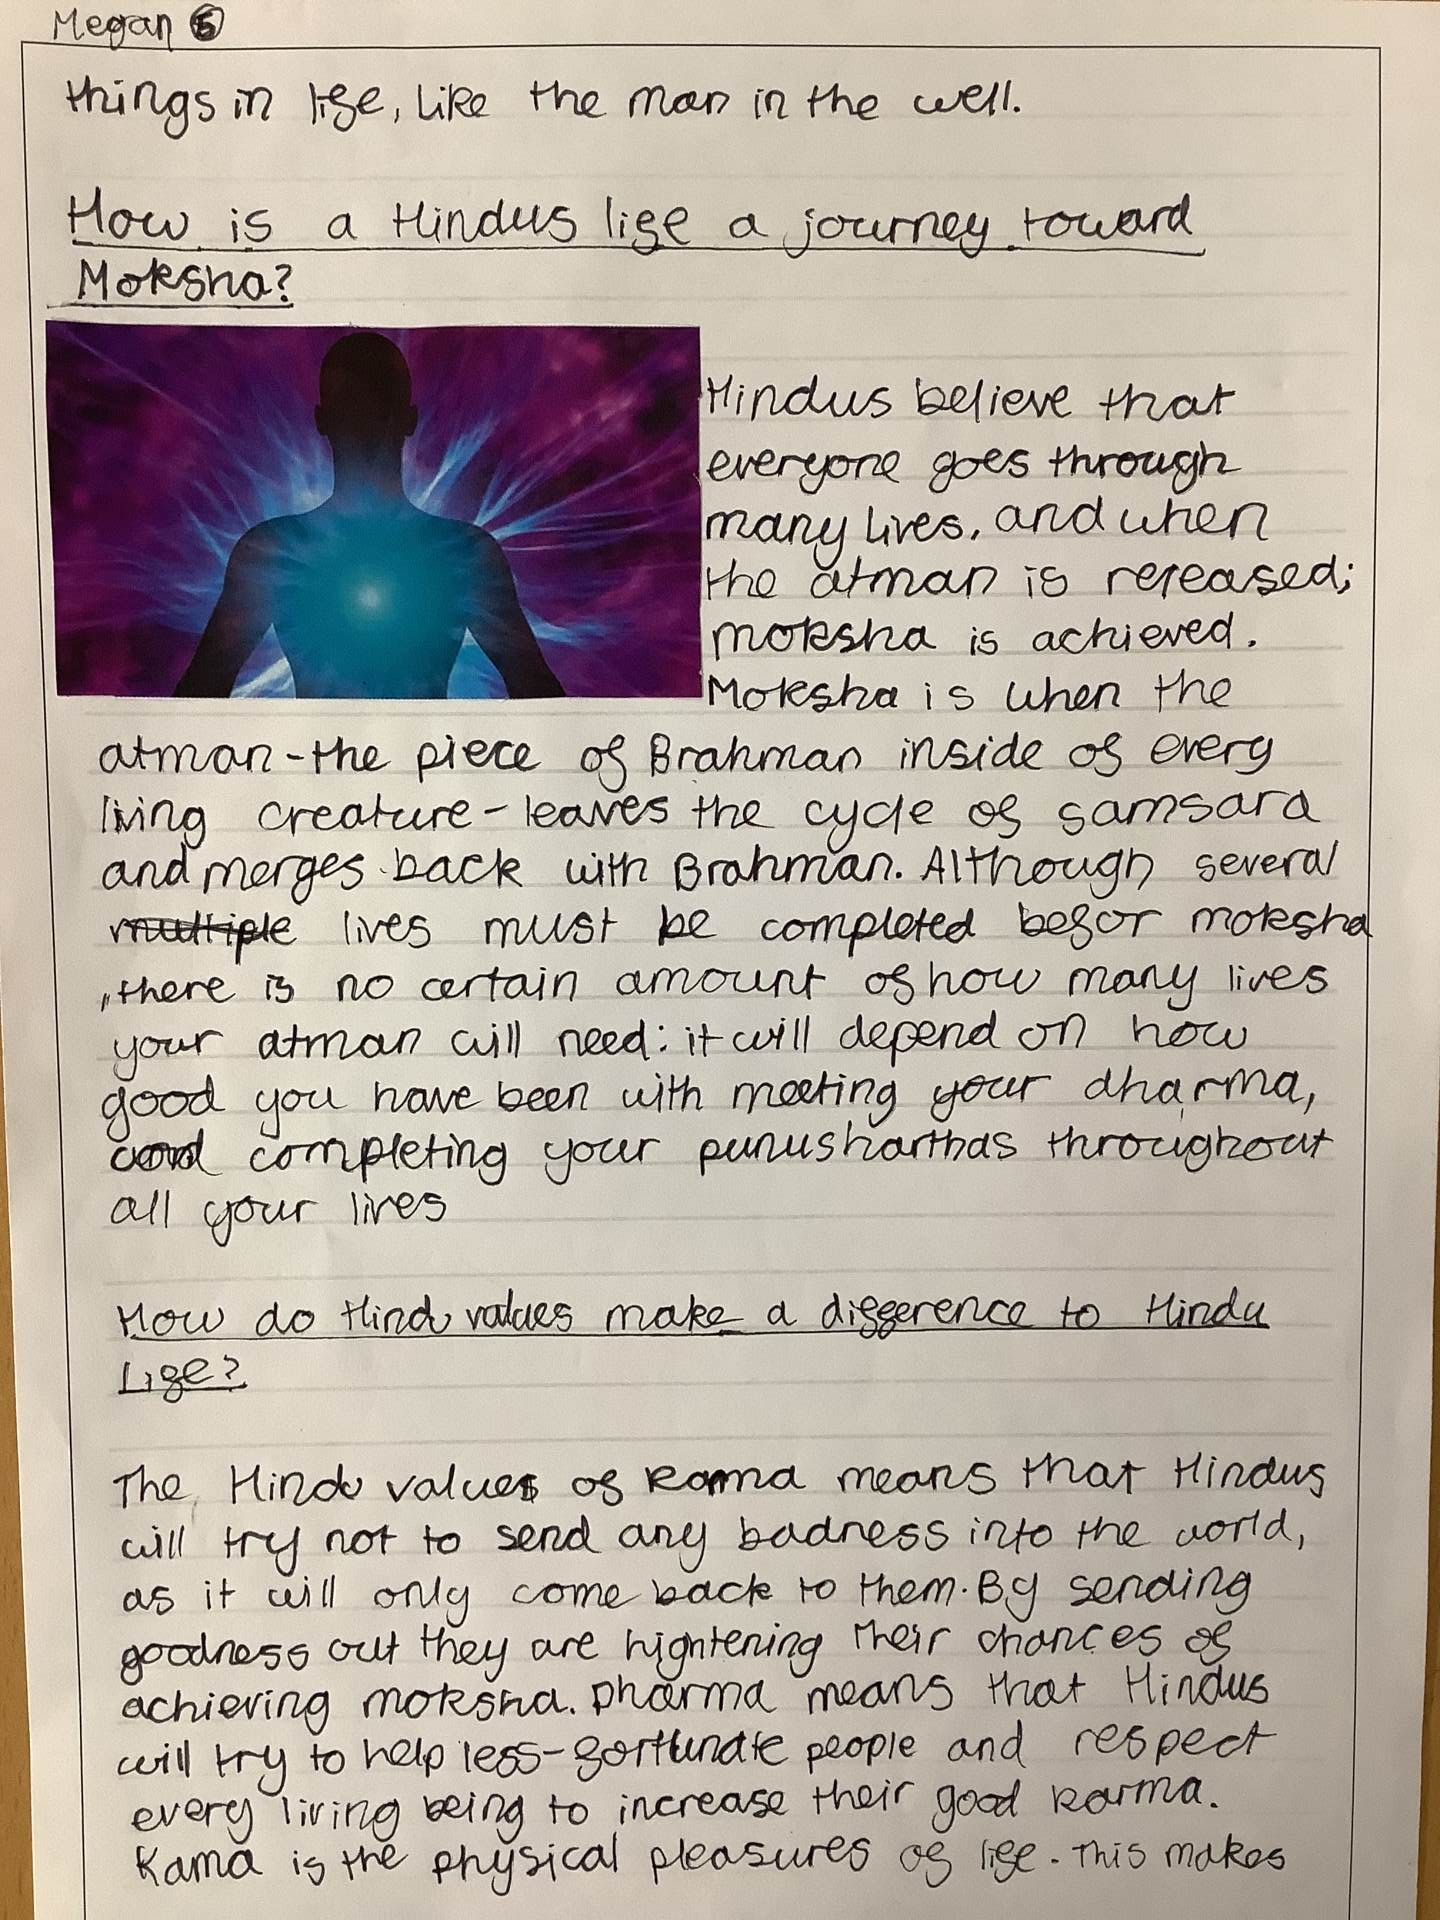 Megan 5
things in life, like the man in the well.
How is a Hindus life a journey toward
Moksha?
Hindus believe that
everyone goes through
many lives, and when
the atman is released;
moksha is achieved.
Moksha is when the
atman - the piece of Brahman inside of every
living creature - leaves the cycle of samsara
and merges back with Brahman. Although several
multiple lives must be completed befor moksha
, there is no certain amount of how many lives
your atman will need: it will depend on how
good you have been with meeting your dharma,
and completing your punusharthas throughout
all your lives
How do Hindu values make a difference to Hindu
Life?
The Hindu values of karma means that Hindus
will try not to send any badness into the world,
as it will only come back to them. By sending
goodness out they are hightening their chances of
achieving moksha. Dharma means that Hindus
will try to help less-fortunate people and respect
every living being to increase their good karma.
Kama is the physical pleasures of life. This makes